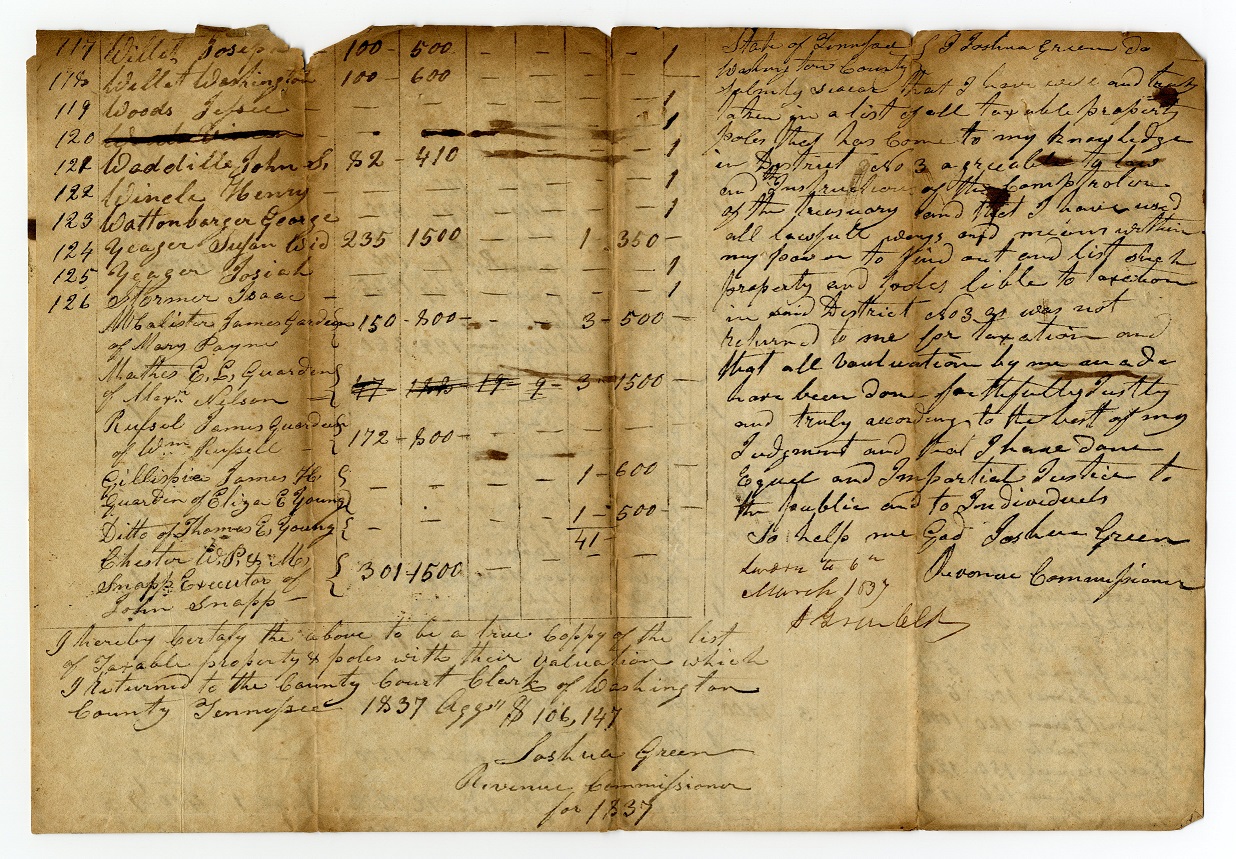 117 Willet Joseph 100 - 500 - - - - 1
118 Willet Washington 100 - 600 - - - -
119 Woods Jessee - - - - - - 1
120
121 Waddille John S, 82 - 410 - - - - 1
122 Wincle Henry - - - - - - 1
123 Wattonbarger George - - - - - - 1
124 Yeager Susan Wid 235 1500 - - 1 - 350 -
125 Yeager Josiah - - - - - - 1
126 Stormer Isaac - - - - - - 1
McCalister James Garden 150 - 800 - - - 3 - 500 -
of Mary Payne
Mathis E. L, Guarden 47 188 19 - 9 - 3 - 1500 -
of Alexr. Nelson -
Russel James Guarden 172 - 800 - - - - -
of Wm. Russell -
Gillispie James H - - - - 1 - 600 -
Guarden of Eliza E Young
Ditto of Thomas E, Young - - - - 1 - 500 -
41 -
Chester W. P. & M,
Snapp Executor of 301 - 1500 - - - -
John Snapp -
I hereby Certafy the above to be a true Coppy of the list
of Taxable property & poles with their valuation which
I returned to the County Court Clark of Washington
County Tennessee 1837 Aggt $ 106,147
Joshua Green
Revenue Commissioner
for 1837
State of Tennessee } I Joshua Green do
Washington County }
solemly swear that I have well and truly
taken in a list of all taxable property
poles that has Come to my knowledge
in District No 3 agreeable to law
and the Instructions of the Comptroler
of the treasuary and that I have used
all lawfull ways and means within
my power to find out and list such
property and poles lible to taxation
in said District No 3 as was not
returned to me for taxation and
that all vauluation by me made
have been done faithfully Justly
and truly according to the best of my
Judgment and that I have done
Equel and Impartial Justice to
the public and to Individuels
So help me God Joshua Green
Sworn to 6th Revonue Commissioner
March 1837